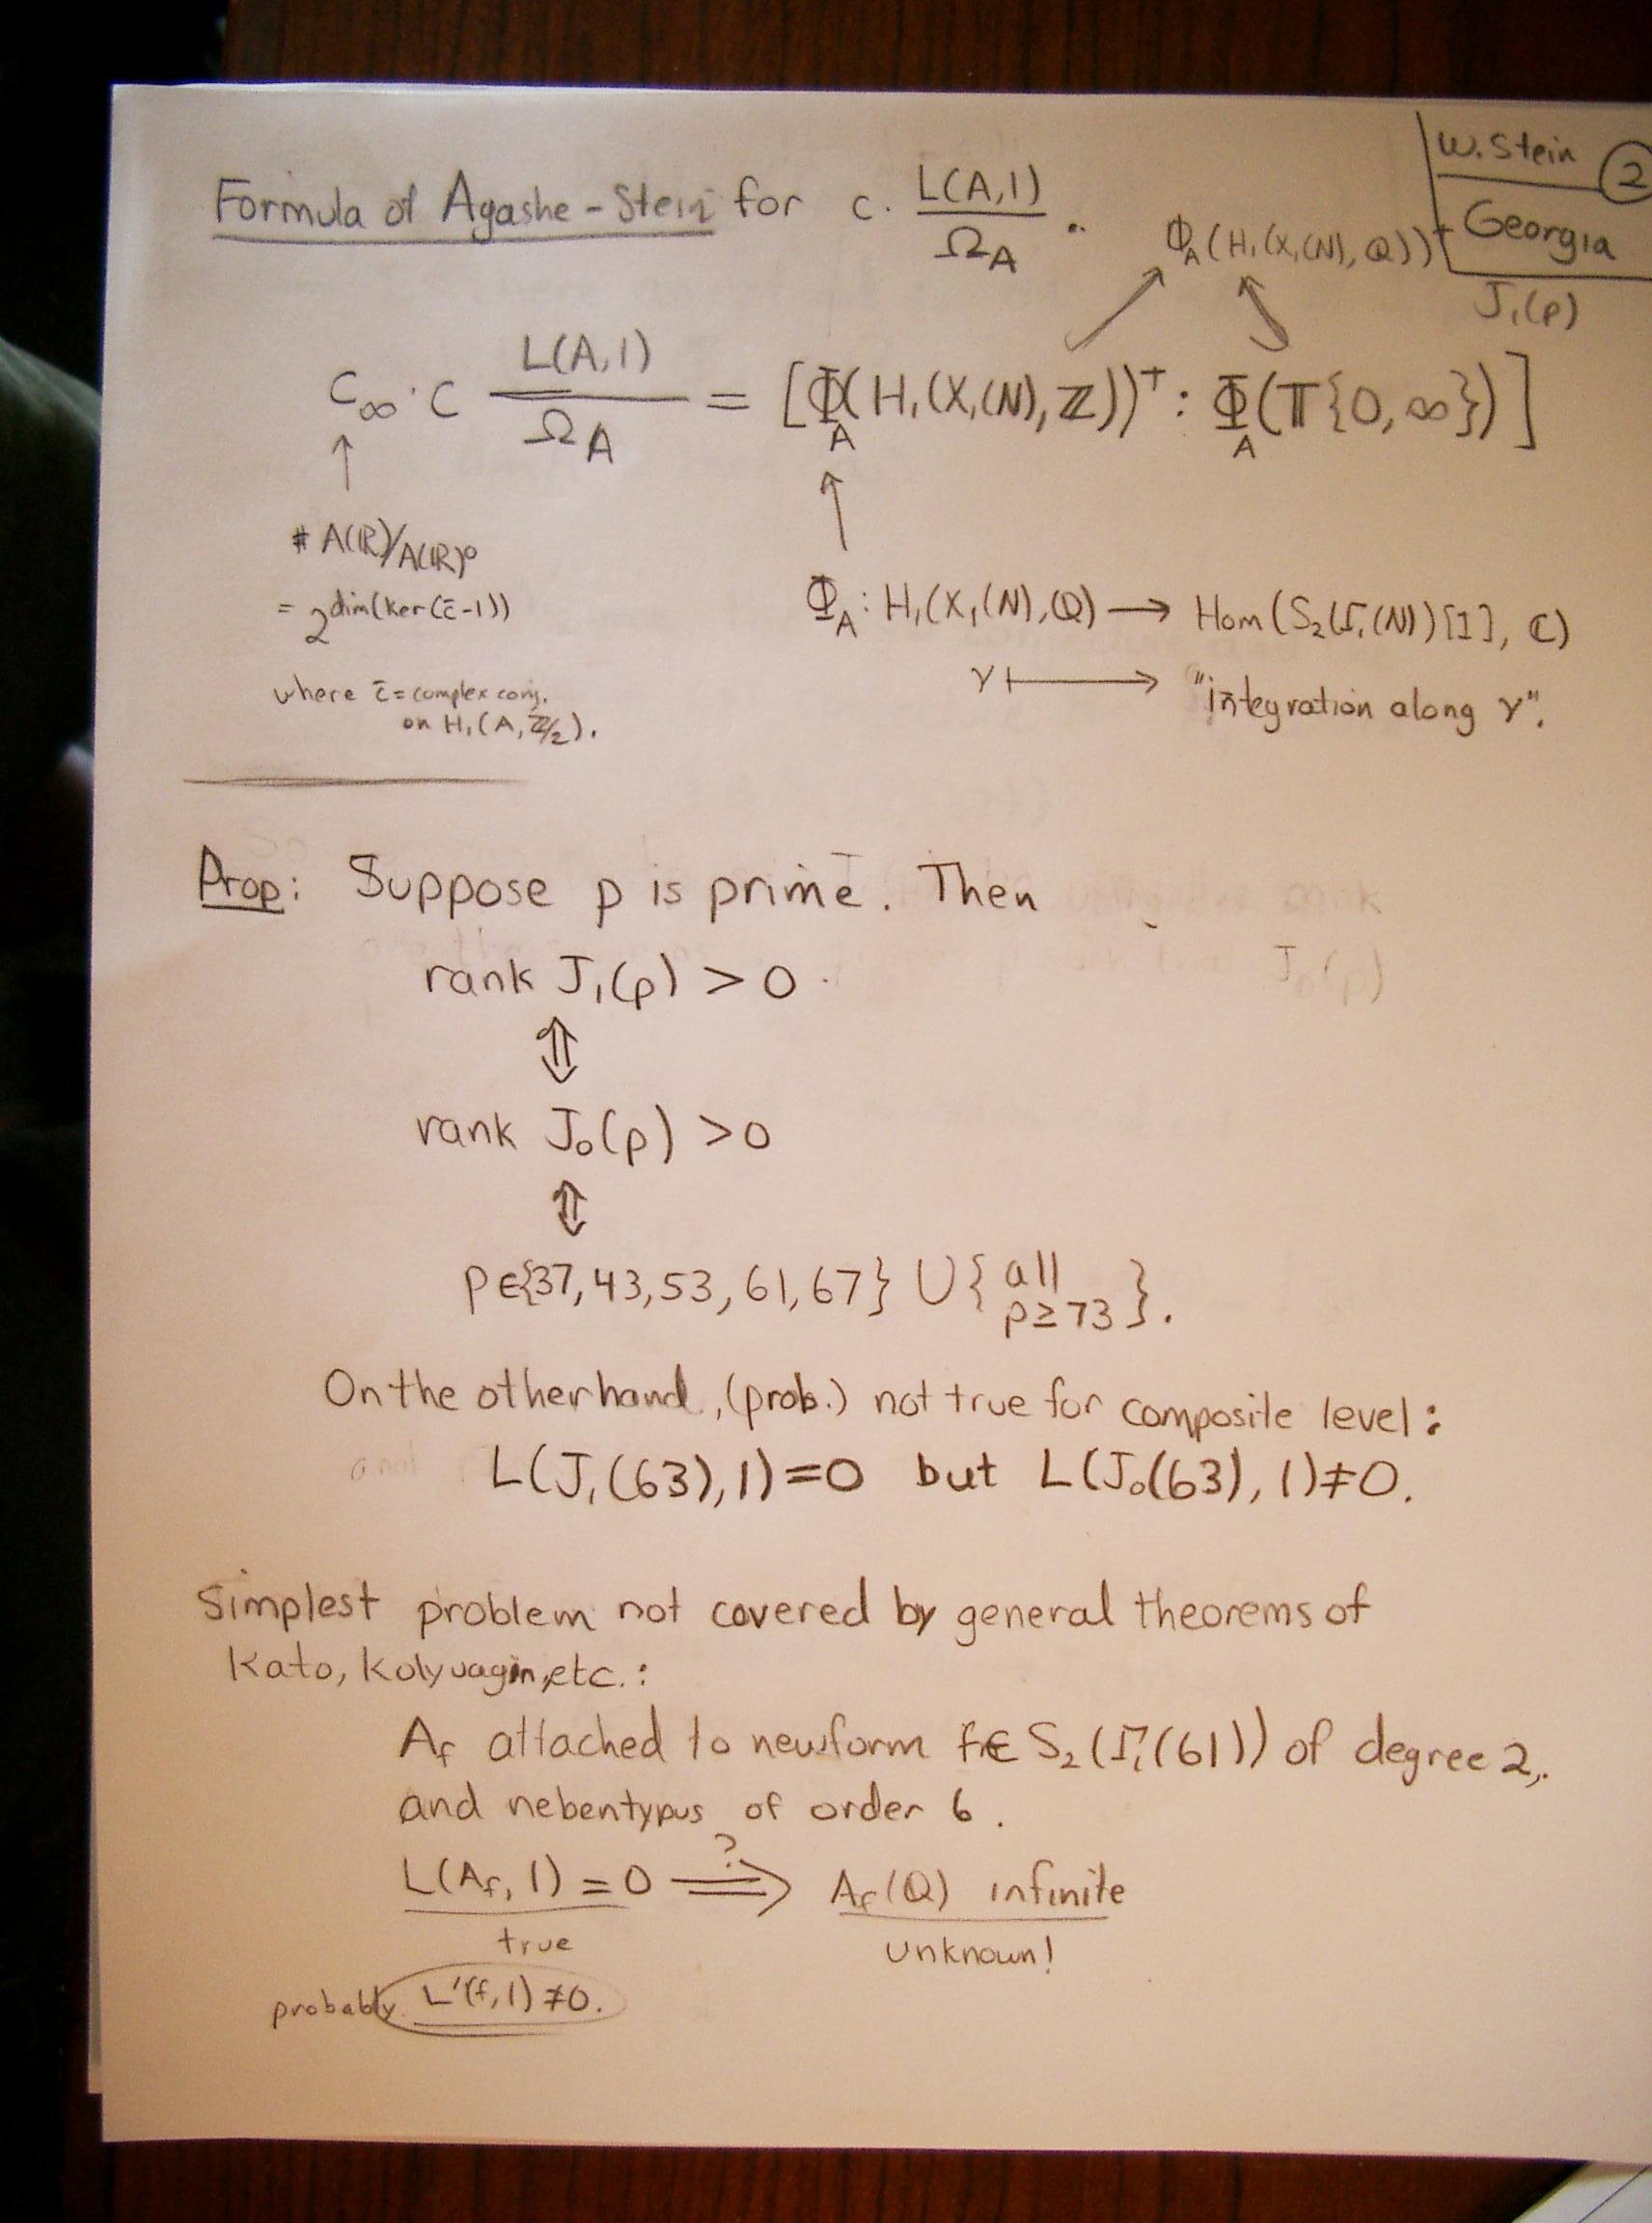 W. Stein ②
Georgia
J₁(p)
Formula of Agashe-Stein for c. L(A,1)/Ω_A .
Φ_A(H₁(X₁(N),Q))⁺
C∞·C L(A,1)/Ω_A = [Φ_A(H₁(X₁(N),ℤ))⁺ : Φ_A(𝕋{0,∞})]
# A(ℝ)/A(ℝ)⁰
= 2^dim(ker(c̄-1))
where c̄ = complex conj.
on H₁(A, ℤ/2).
Φ_A : H₁(X₁(N),Q) → Hom(S₂(Γ₁(N))[I], ℂ)
γ ↦ "integration along γ".
Prop: Suppose p is prime. Then
rank J₁(p) > 0
⇕
rank J₀(p) > 0
⇕
p∈{37,43,53,61,67} ∪ { all p≥73 }.
On the other hand, (prob.) not true for composite level:
L(J₁(63),1)=0 but L(J₀(63),1)≠0.
Simplest problem not covered by general theorems of
Kato, Kolyvagin, etc.:
A_f attached to newform f∈S₂(Γ₁(61)) of degree 2,
and nebentypus of order 6.
L(A_f, 1) = 0 ⟹? A_f(Q) infinite
true unknown!
probably L'(f,1) ≠0.